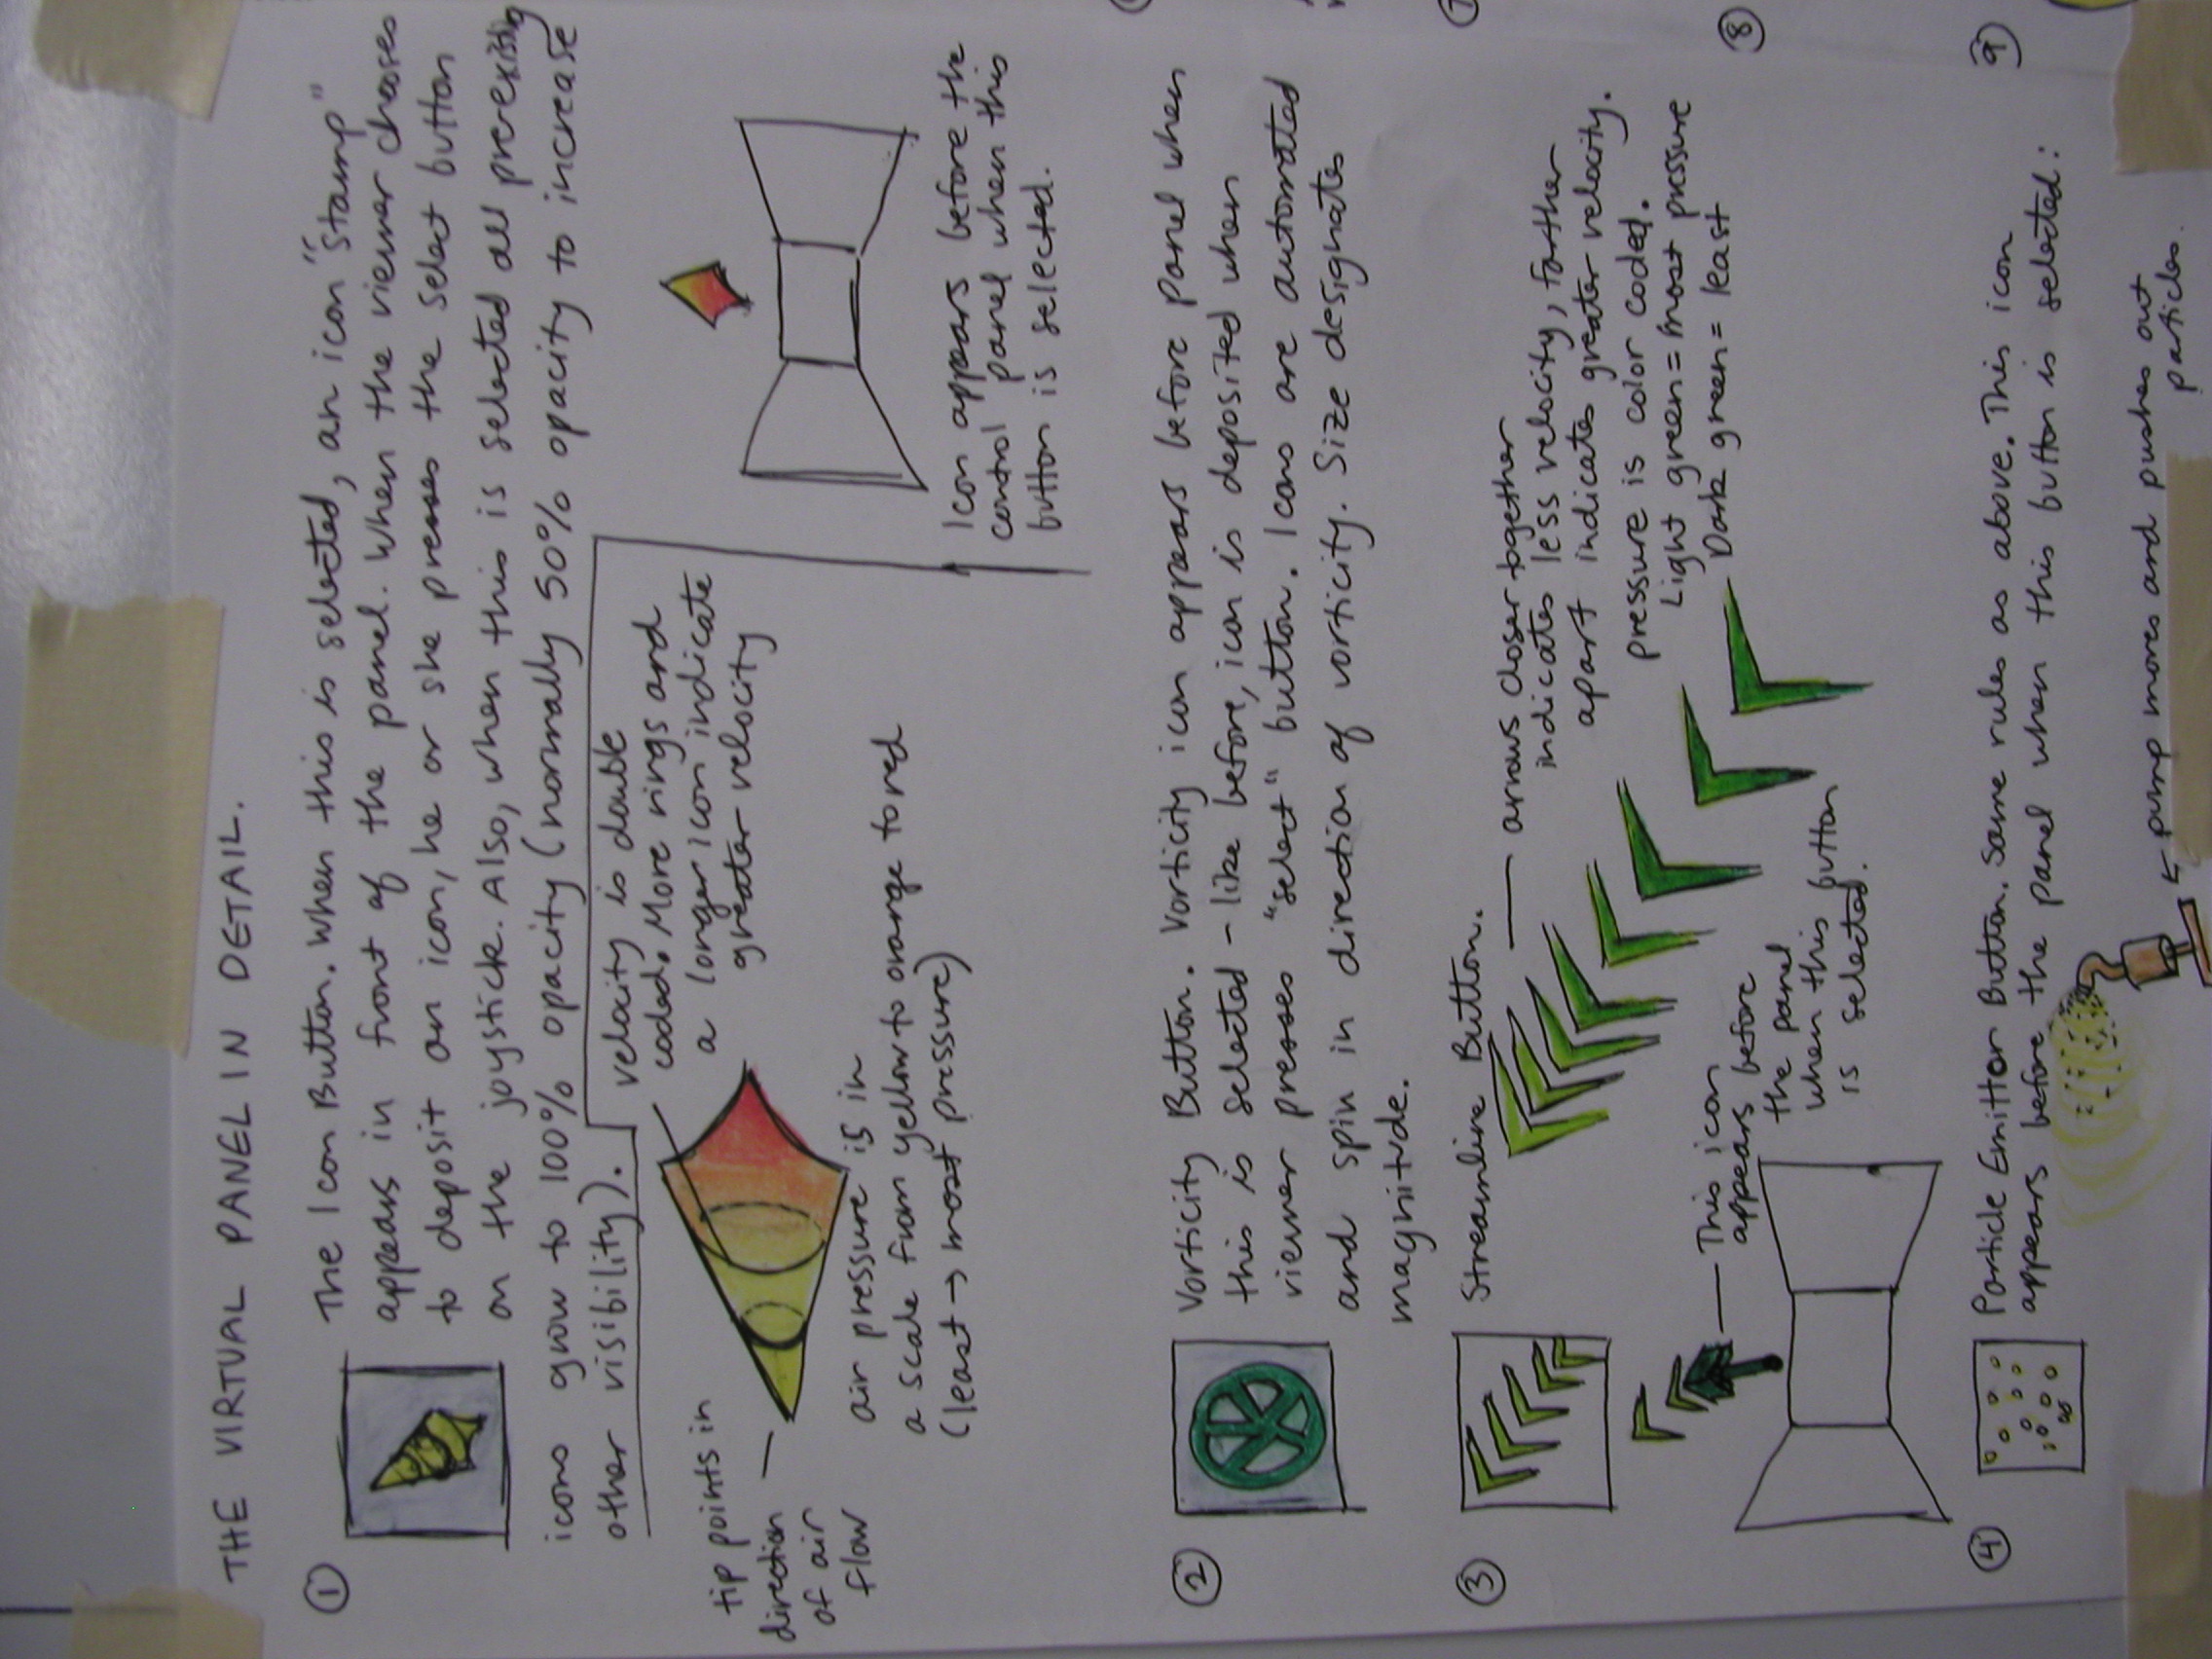 THE VIRTUAL PANEL IN DETAIL.
① The Icon Button. When this is selected, an icon "stamp"
appears in front of the panel. When the viewer chooses
to deposit an icon, he or she presses the select button
on the joystick. Also, when this is selected all preexisting
icons grow to 100% opacity (normally 50% opacity to increase
other visibility).
velocity is double
coded. More rings and
a longer icon indicate
greater velocity
tip points in
direction
of air
flow
air pressure is in
a scale from yellow to orange to red
(least → most pressure)
Icon appears before the
control panel when this
button is selected.
② Vorticity Button. Vorticity icon appears before panel when
this is selected - like before, icon is deposited when
viewer presses "select" button. Icons are automated
and spin in direction of vorticity. Size designates
magnitude.
③ Streamline Button.
arrows closer together
indicates less velocity, further
apart indicates greater velocity.
pressure is color coded.
Light green = most pressure
Dark green = least
This icon
appears before
the panel
when this button
is selected.
④ Particle Emitter Button. Same rules as above. This icon
appears before the panel when this button is selected:
← pump moves and pushes out
particles.
⑧
⑨